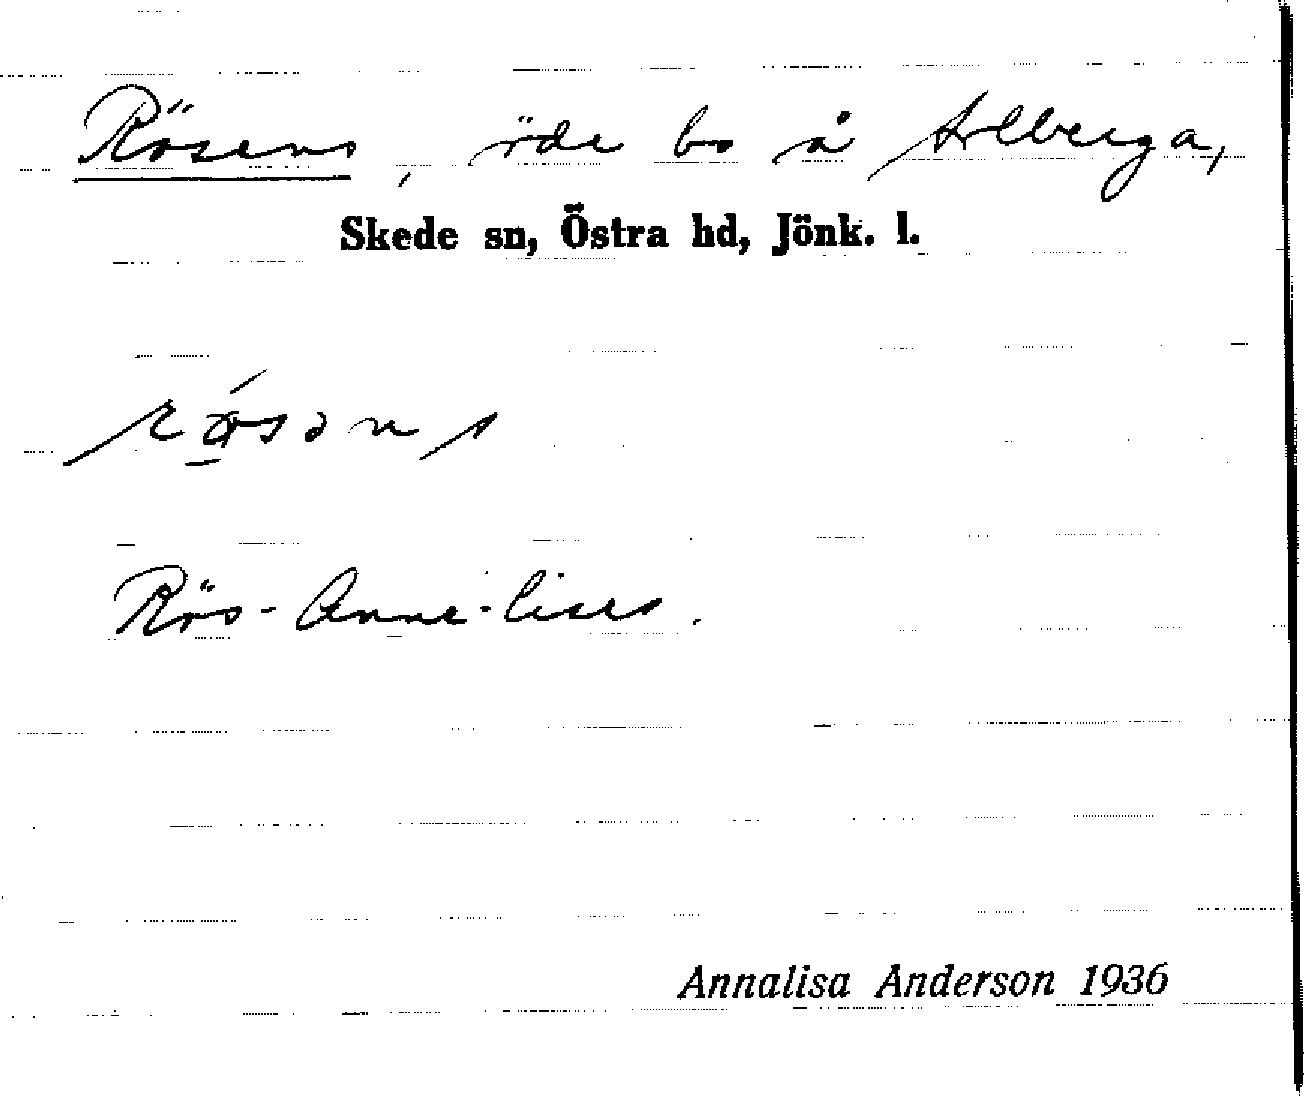 Rösens, öde bo å Alberga,
Skede sn, Östra hd, Jönk. l.
Rös-Anne-Lises.
Annalisa Anderson 1936